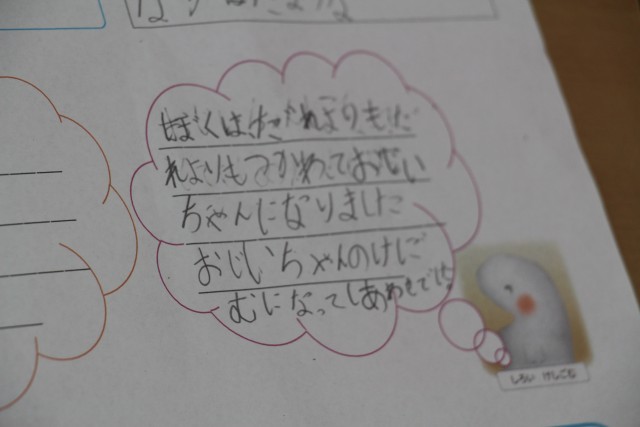 ぼくはだれよりもだ
れよりもつかわておじい
ちゃんになりました
おじいちゃんのけしご
むになってしあわせでした。
しろい けしごむ